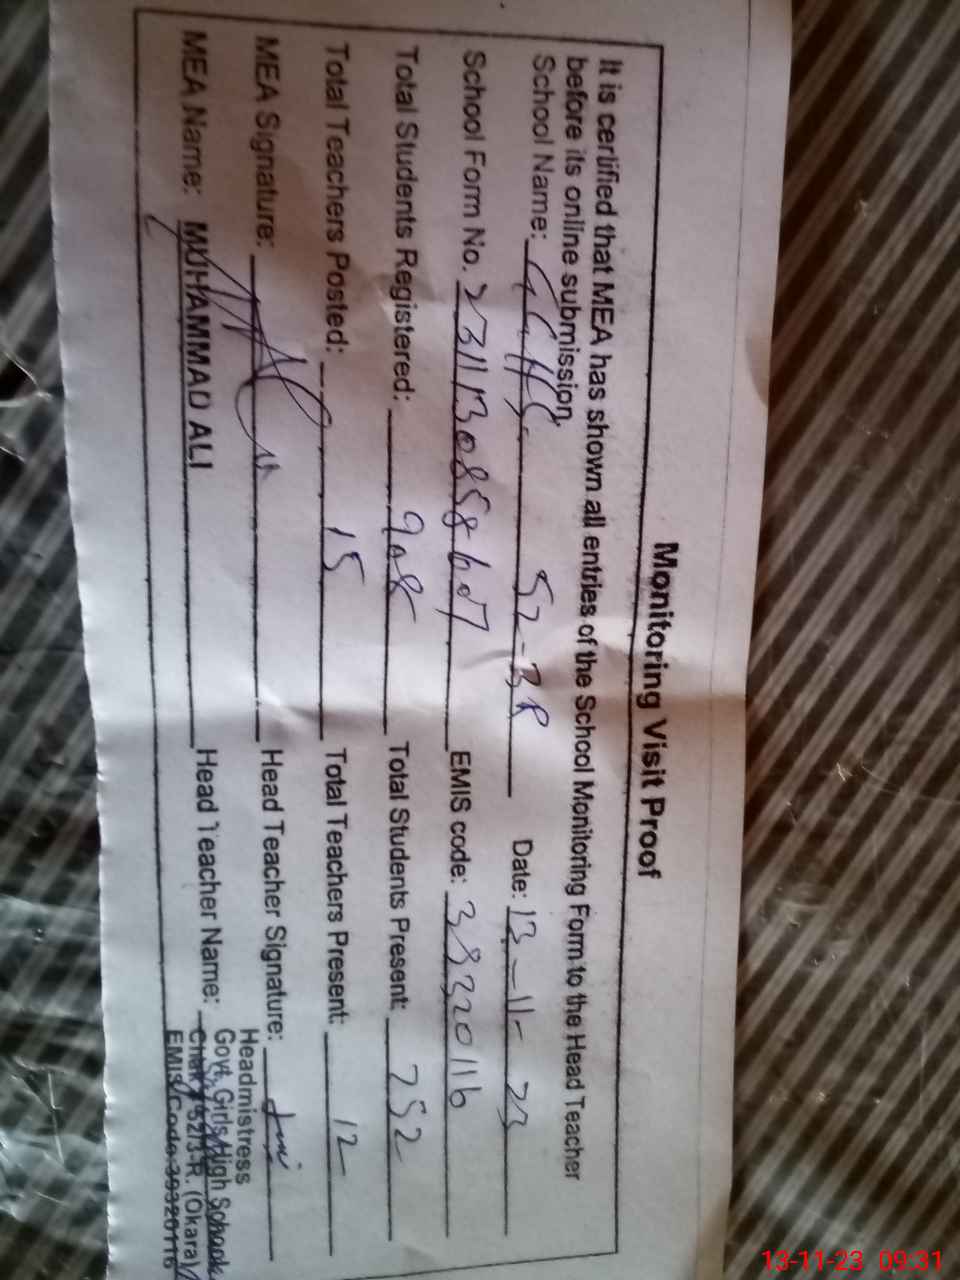 Monitoring Visit Proof
It is certified that MEA has shown all entries of the School Monitoring Form to the Head Teacher
before its online submission.
School Name: GGHS. 52-3R Date: 13-11-23
School Form No. EMIS code: 39320116
Total Students Registered: 908 Total Students Present: 752
Total Teachers Posted: 15 Total Teachers Present: 12
MEA Signature: Head Teacher Signature:
MEA Name: MUHAMMAD ALI Head Teacher Name:
Headmistress
Govt. Girls High School
Chak # 52/3-R. (Okara)
EMIS Code 39320116
13-11-23 09:31